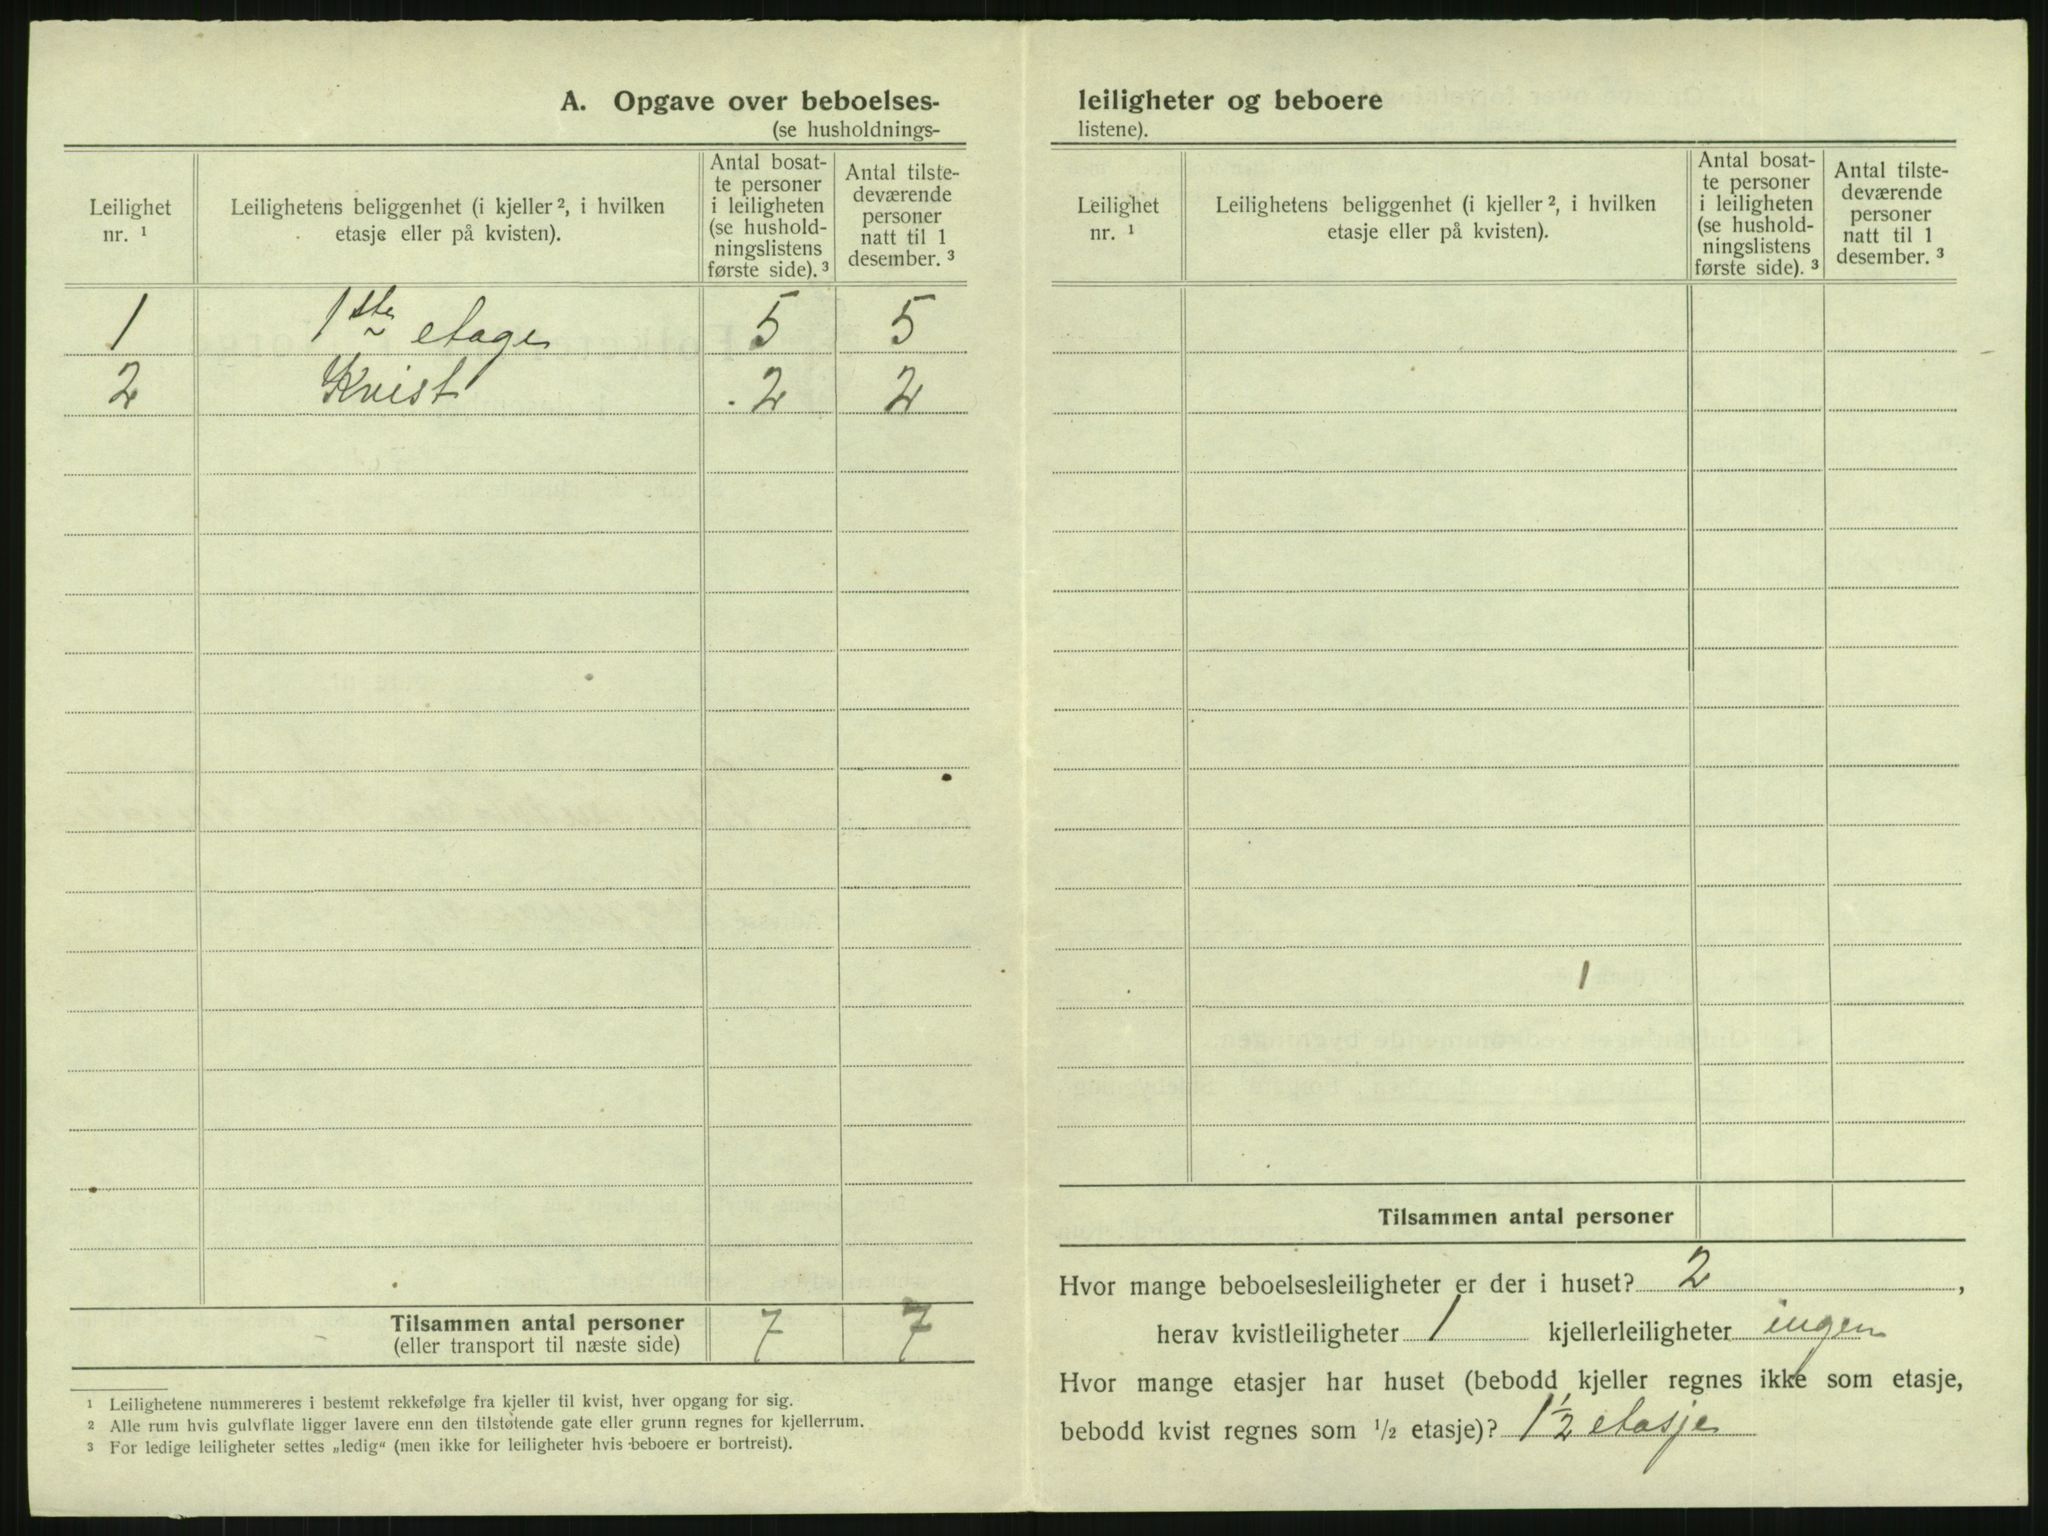 A. Opgave over beboelses-
(se husholdnings-
Leilighet nr. 1
Leilighetens beliggenhet (i kjeller 2, i hvilken
etasje eller på kvisten).
Antal bosat-
te personer
i leiligheten
(se hushold-
ningslistens
første side). 3
Antal tilste-
deværende
personer
natt til 1
desember. 3
1 1ste etage 5 5
2 Kvist 2 2
Tilsammen antal personer 7 7
(eller transport til næste side)
1 Leilighetene nummereres i bestemt rekkefølge fra kjeller til kvist, hver opgang for sig.
2 Alle rum hvis gulvflate ligger lavere enn den tilstøtende gate eller grunn regnes for kjellerrum.
3 For ledige leiligheter settes „ledig“ (men ikke for leiligheter hvis beboere er bortreist).
leiligheter og beboere
listene).
Leilighet
nr. 1
Leilighetens beliggenhet (i kjeller 2, i hvilken
etasje eller på kvisten).
Antal bosat-
te personer
i leiligheten
(se hushold-
ningslistens
første side). 3
Antal tilste-
deværende
personer
natt til 1
desember. 3
Tilsammen antal personer
Hvor mange beboelsesleiligheter er der i huset? 2 ,
herav kvistleiligheter 1 kjellerleiligheter ingen
Hvor mange etasjer har huset (bebodd kjeller regnes ikke som etasje,
bebodd kvist regnes som 1/2 etasje)? 1 1/2 etasje